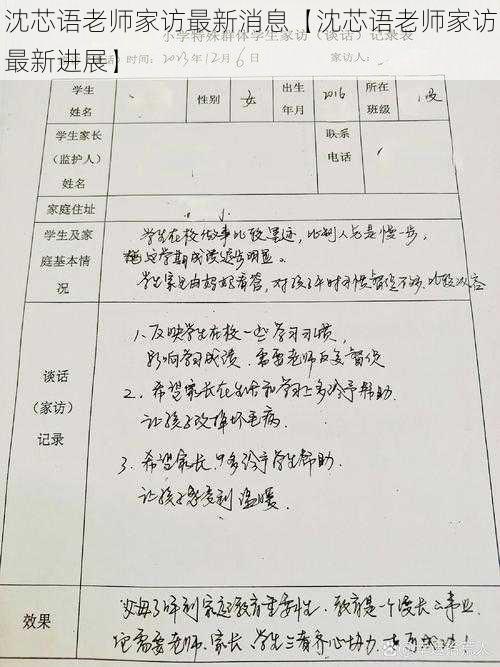 沈芯语老师家访最新消息【沈芯语老师家访最新进展】
小学特殊群体学生家访(谈话)记录表
时间：2023年12月6日 家访人：
学生姓名 性别 女 出生年月 2016 所在班级
学生家长(监护人)姓名 联系电话
家庭住址
学生及家庭基本情况
学生在校做事比较墨迹，比别人总是慢一步，
这学期成绩退步明显。
学生家里由妈妈看管，对孩子平时习惯督促不够，比较
谈话(家访)记录
1、反映学生在校一些学习习惯，
影响学习成绩，需要老师反复督促
2、希望家长在生活和学习上多给予帮助.
让孩子改掉坏毛病.
3、希望家长多给予学生帮助.
让孩子感受到温暖.
效果
父母了解到家庭教育重要性，教育是一个漫长的事业
它需要老师、家长、学生三者齐心协力，